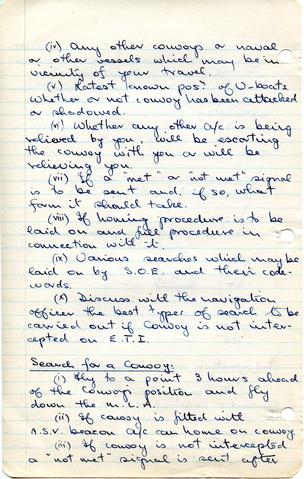 (iv) Any other convoys or naval
or other vessels which may be in
vicinity of your travel.
(v) Latest known posⁿ of U-boats
whether or not convoy has been attacked
or shadowed.
(vi) Whether any other a/c is being
relieved by you, will be escorting
the convoy with you or will be
relieving you.
(vii) If a "met" or "not met" signal
is to be sent and, if so, what
form it should take.
(viii) If homing procedure is to be
laid on and full procedure in
connection with it.
(ix) Various searches which may be
laid on by S.O.E. and their code-
words.
(x) Discuss with the navigation
officer the best types of search to be
carried out if convoy is not inter-
cepted on E.T.I.
Search for a Convoy:
(i) Fly to a point 3 hours ahead
of the convoy's position and fly
down the M.L.A.
(ii) If convoy is fitted with
A.S.V. beacon a/c can home on convoy
(iii) If convoy is not intercepted
a "not met" signal is sent after